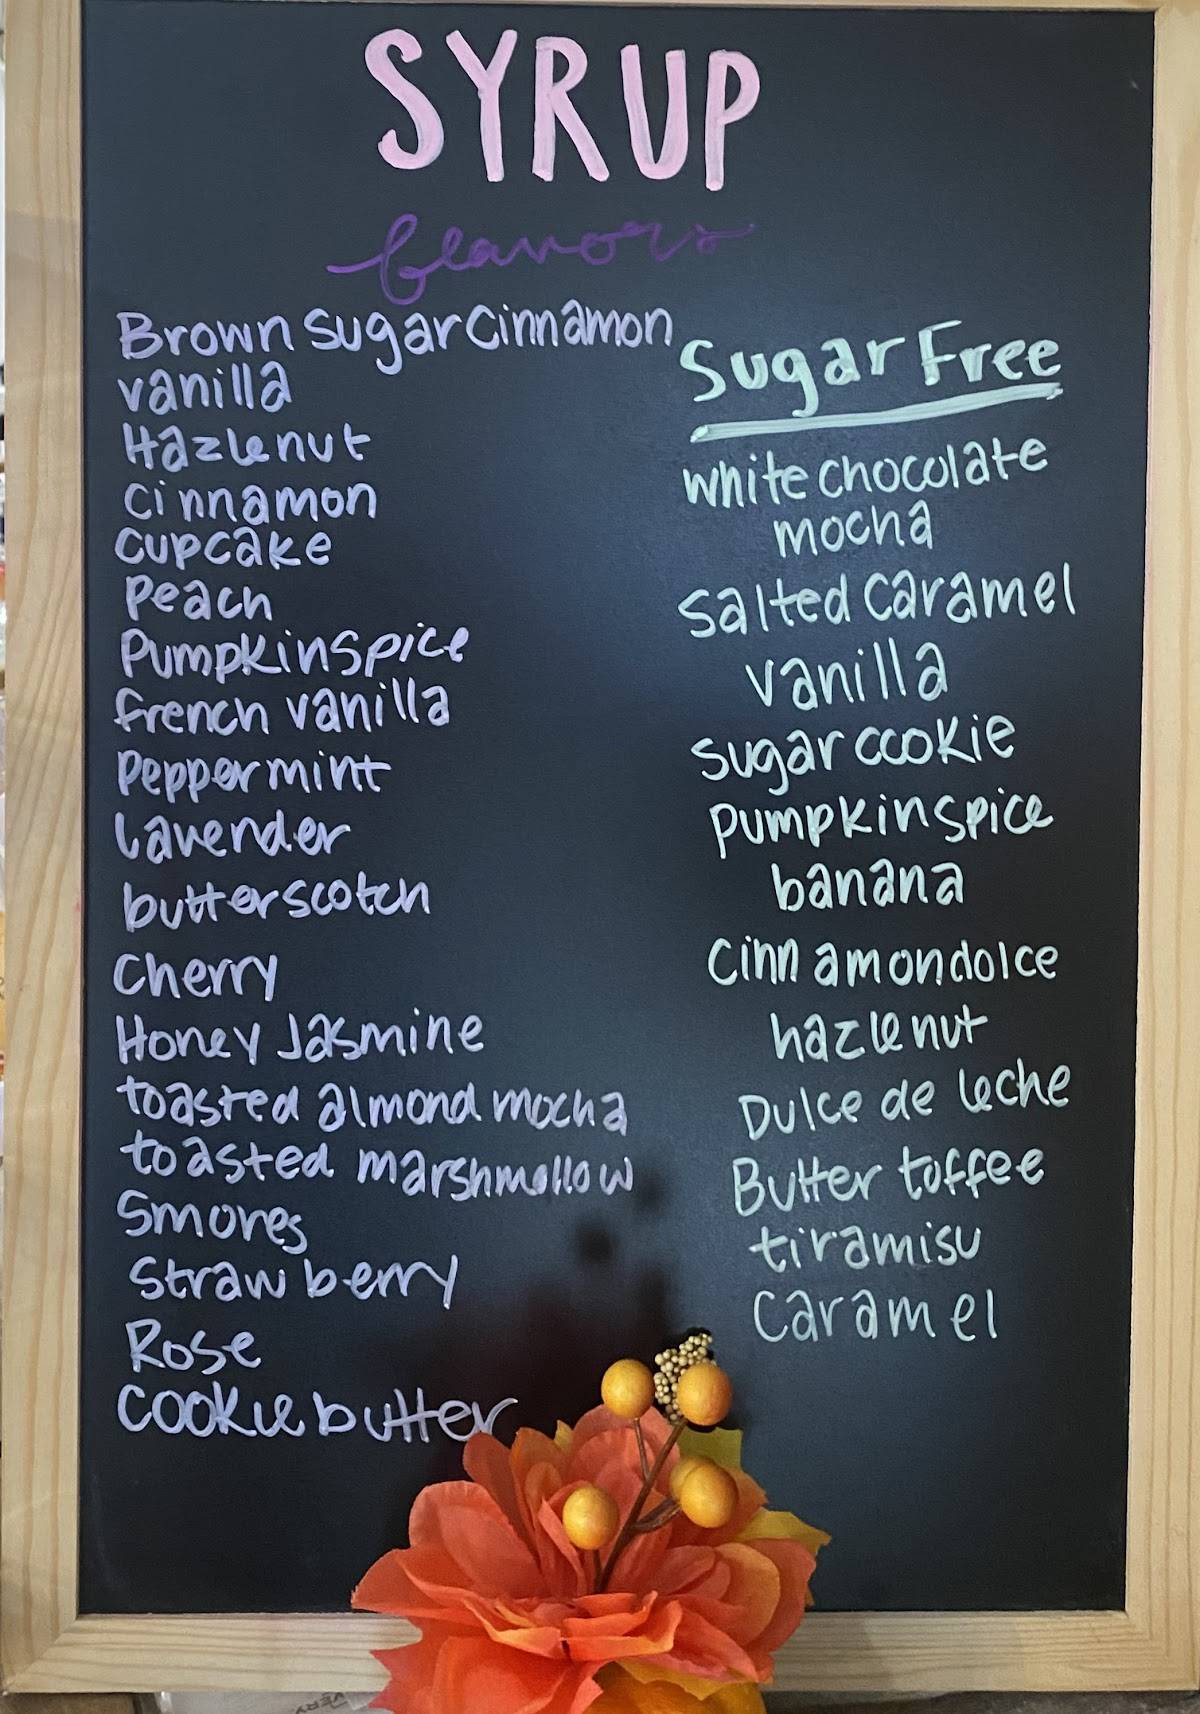 SYRUP
flavors
Brown Sugar Cinnamon
vanilla
Hazlenut
Cinnamon
cupcake
Peach
Pumpkin Spice
french vanilla
Peppermint
lavender
butterscotch
Cherry
Honey Jasmine
toasted almond mocha
toasted marshmallow
Smores
Strawberry
Rose
Cookie butter
Sugar Free
white chocolate
mocha
Salted Caramel
vanilla
sugar cookie
pumpkin spice
banana
Cinnamon dolce
hazlenut
Dulce de leche
Butter toffee
tiramisu
Caramel